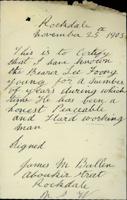 Rockdale
November 25th 1903
This is to Certify
that I have known
the Bearer Lee Foong
Young for a number
of years during which
time He has been a
honest Peaceable
and Hard working
man
Signed
James M Ballen
Street
Rockdale